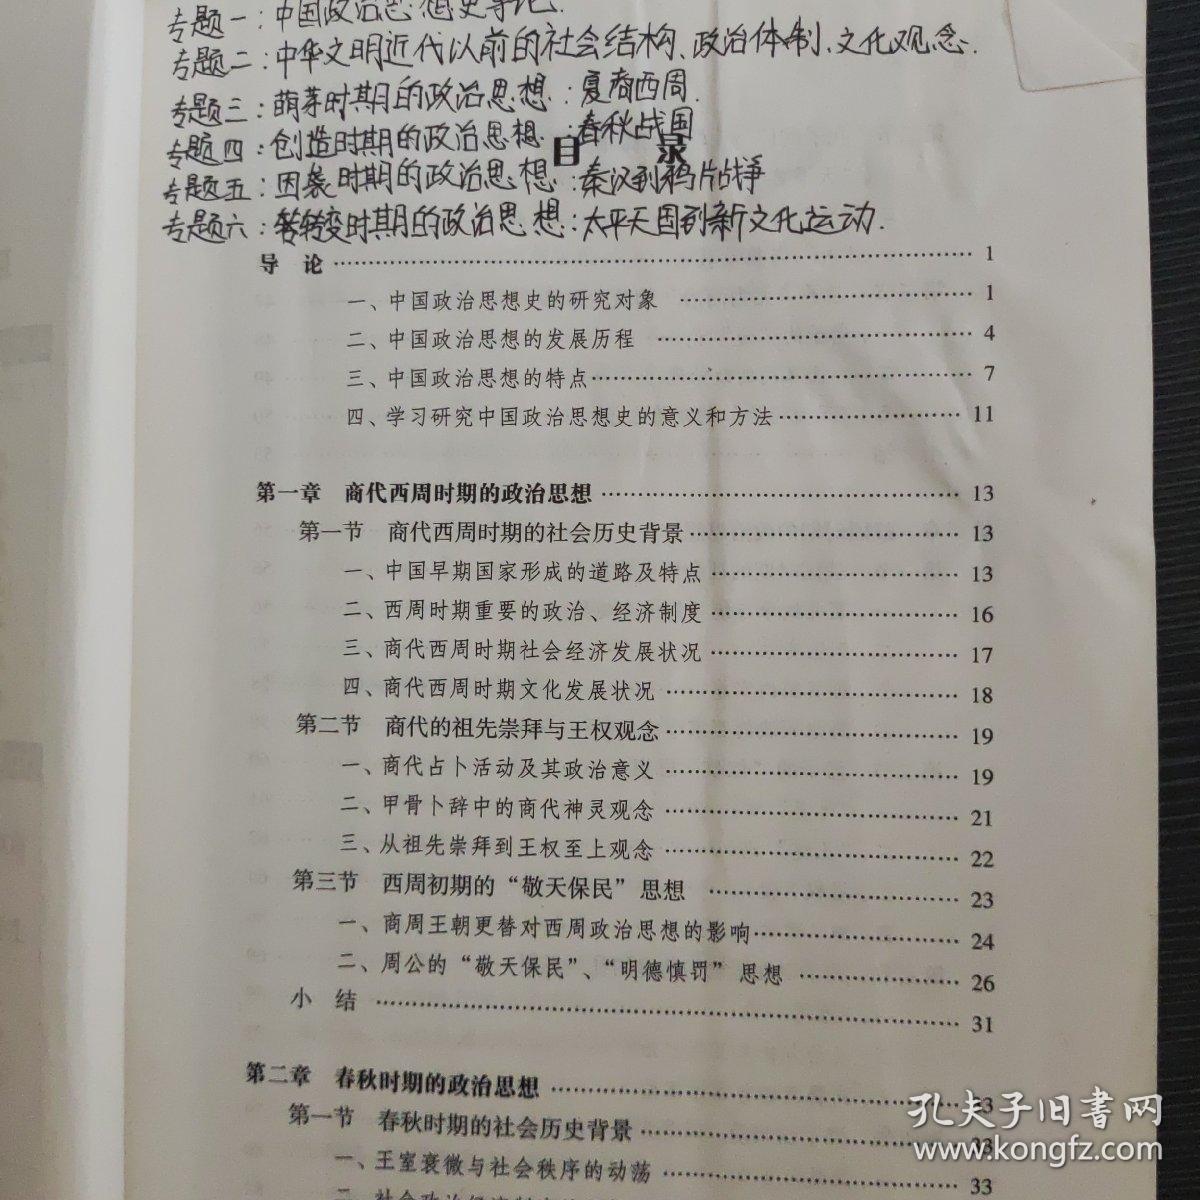 专题一：中国政治思想史导论.
专题二：中华文明近代以前的社会结构、政治体制、文化观念.
专题三：萌芽时期的政治思想：夏商西周.
专题四：创造时期的政治思想：春秋战国
目 录
专题五：因袭时期的政治思想：秦汉到鸦片战争
专题六：转变时期的政治思想：太平天国到新文化运动.
导 论 …… 1
一、中国政治思想史的研究对象 …… 1
二、中国政治思想的发展历程 …… 4
三、中国政治思想的特点 …… 7
四、学习研究中国政治思想史的意义和方法 …… 11
第一章 商代西周时期的政治思想 …… 13
第一节 商代西周时期的社会历史背景 …… 13
一、中国早期国家形成的道路及特点 …… 13
二、西周时期重要的政治、经济制度 …… 16
三、商代西周时期社会经济发展状况 …… 17
四、商代西周时期文化发展状况 …… 18
第二节 商代的祖先崇拜与王权观念 …… 19
一、商代占卜活动及其政治意义 …… 19
二、甲骨卜辞中的商代神灵观念 …… 21
三、从祖先崇拜到王权至上观念 …… 22
第三节 西周初期的“敬天保民”思想 …… 23
一、商周王朝更替对西周政治思想的影响 …… 24
二、周公的“敬天保民”、“明德慎罚”思想 …… 26
小 结 …… 31
第二章 春秋时期的政治思想 …… 33
第一节 春秋时期的社会历史背景 …… 33
一、王室衰微与社会秩序的动荡 …… 33
孔夫子旧书网
www.kongfz.com